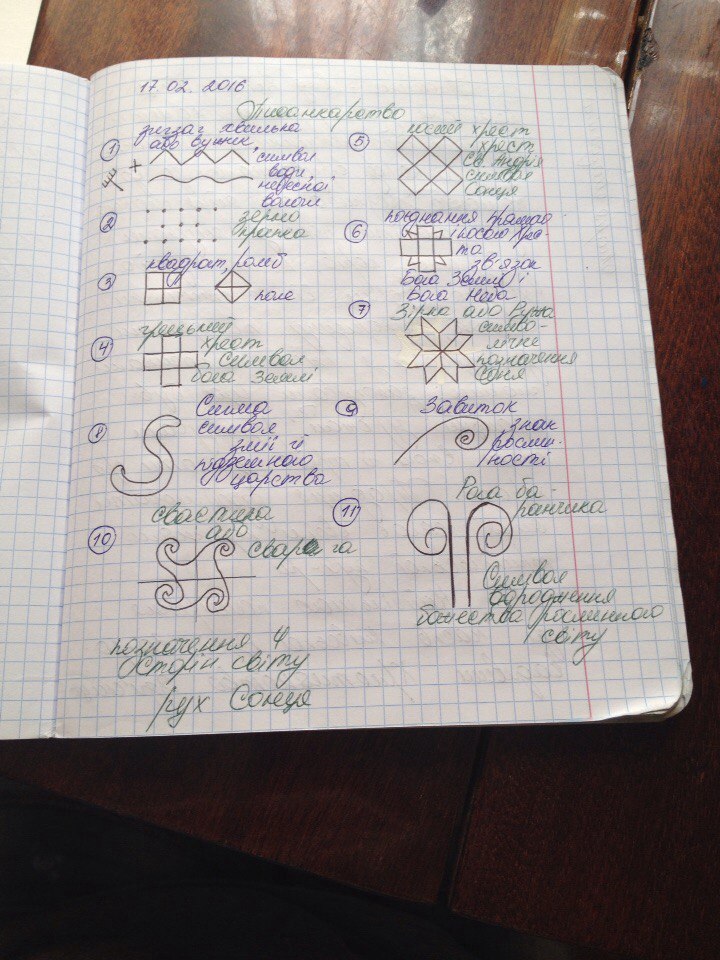 17.02.2016
Писанкарство
① зигзаг хвилька
або вужик,
символ
води,
небесної
вологи
② зерно
крапка
③ квадрат, ромб
поле
④ грецький
хрест
символ
бога Землі
⑤ косий хрест
хрест
Св. Андрія
символ
Сонця
⑥ поєднання прямого
і косого хрес-
та
зв'язок
Бога Землі і
Бога Неба
⑦ Зірка або Ружа
симво-
лічне
позначення
Сонця
8 Сигма
символ
змії й
підземного
царства
9 Завиток
знак
рослин-
ності
10 свастика
або
сварга
позначення 4
сторін світу
рух Сонця
11 Рога ба-
ранчика
Символ
відродження
божества рослинного
світу